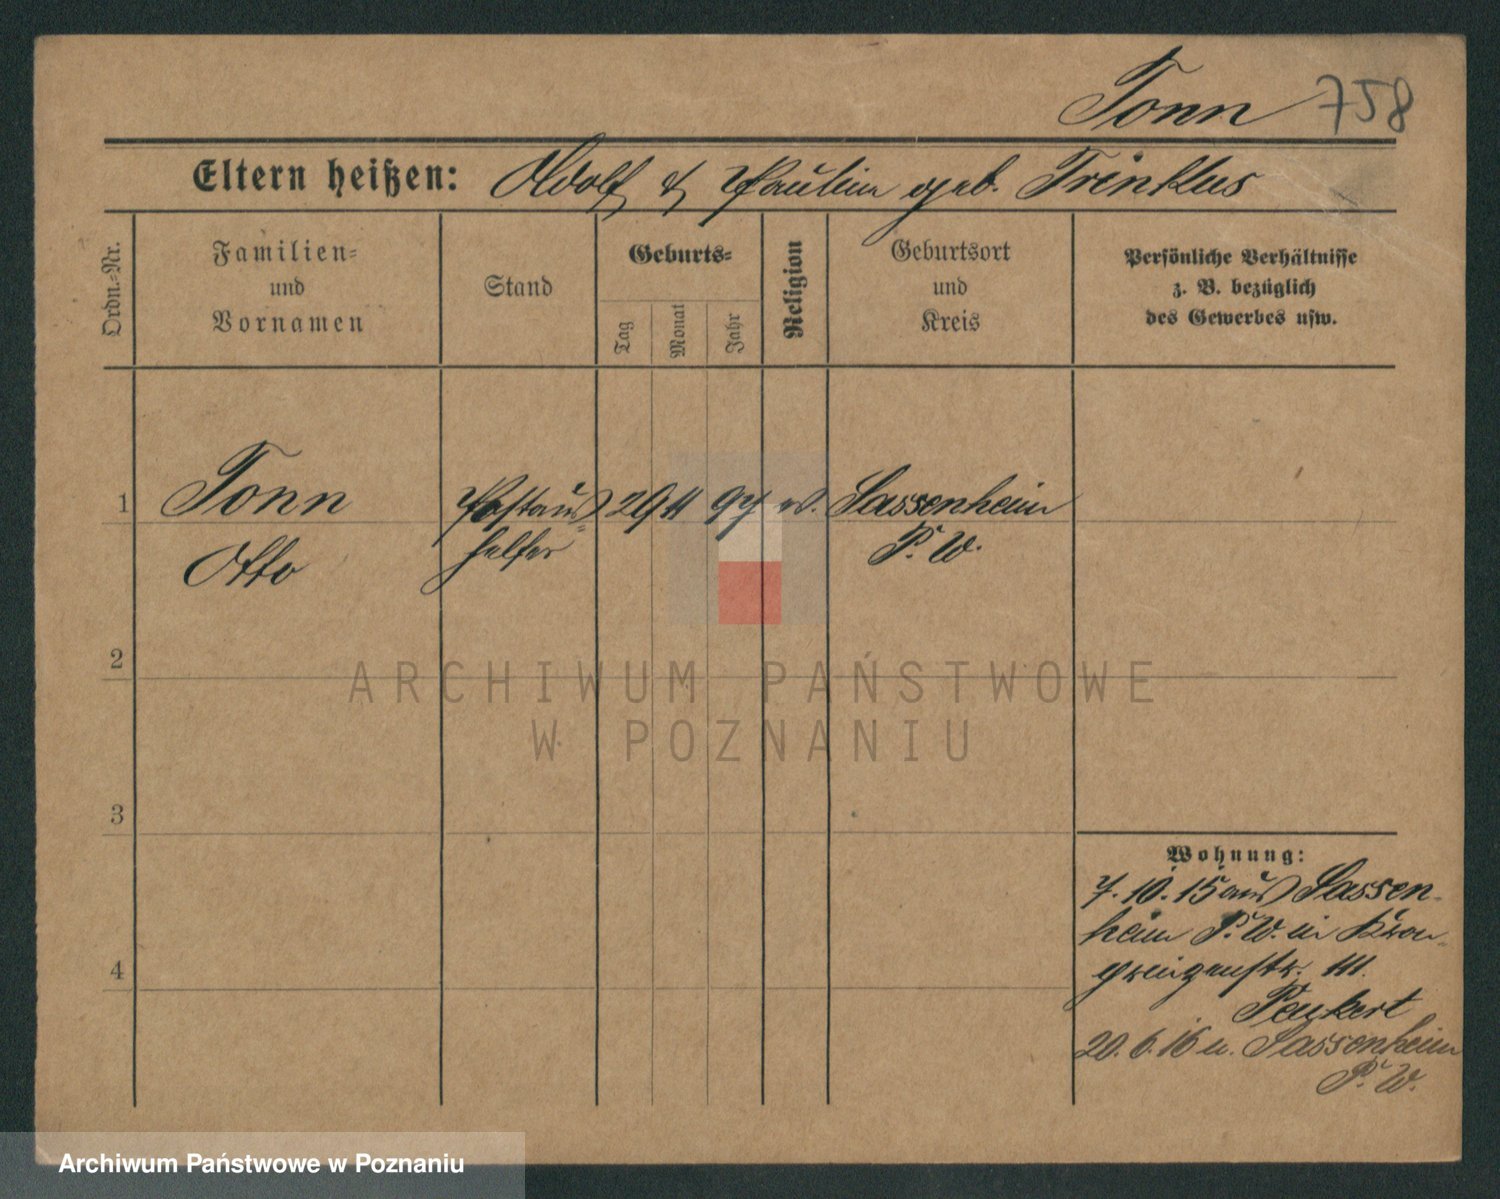 Tonn 758
Eltern heißen: Adolf & Pauline geb. Trinklus
Ordn.-Nr.
Familien-
und
Vornamen
Stand
Geburts-
Tag
Monat
Jahr
Religion
Geburtsort
und
Kreis
Persönliche Verhältnisse
z. B. bezüglich
des Gewerbes usw.
1 Tonn Postaus 29 11 97 ev. Sassenheim
Otto helfer P. W.
2
3
4
Wohnung:
7. 10. 15 aus Sassen-
heim P. W. in Kron-
prinzenstr. 111.
Peukert
20. 6. 16 n. Sassenheim
P. W.
ARCHIWUM PAŃSTWOWE
W POZNANIU
Archiwum Państwowe w Poznaniu